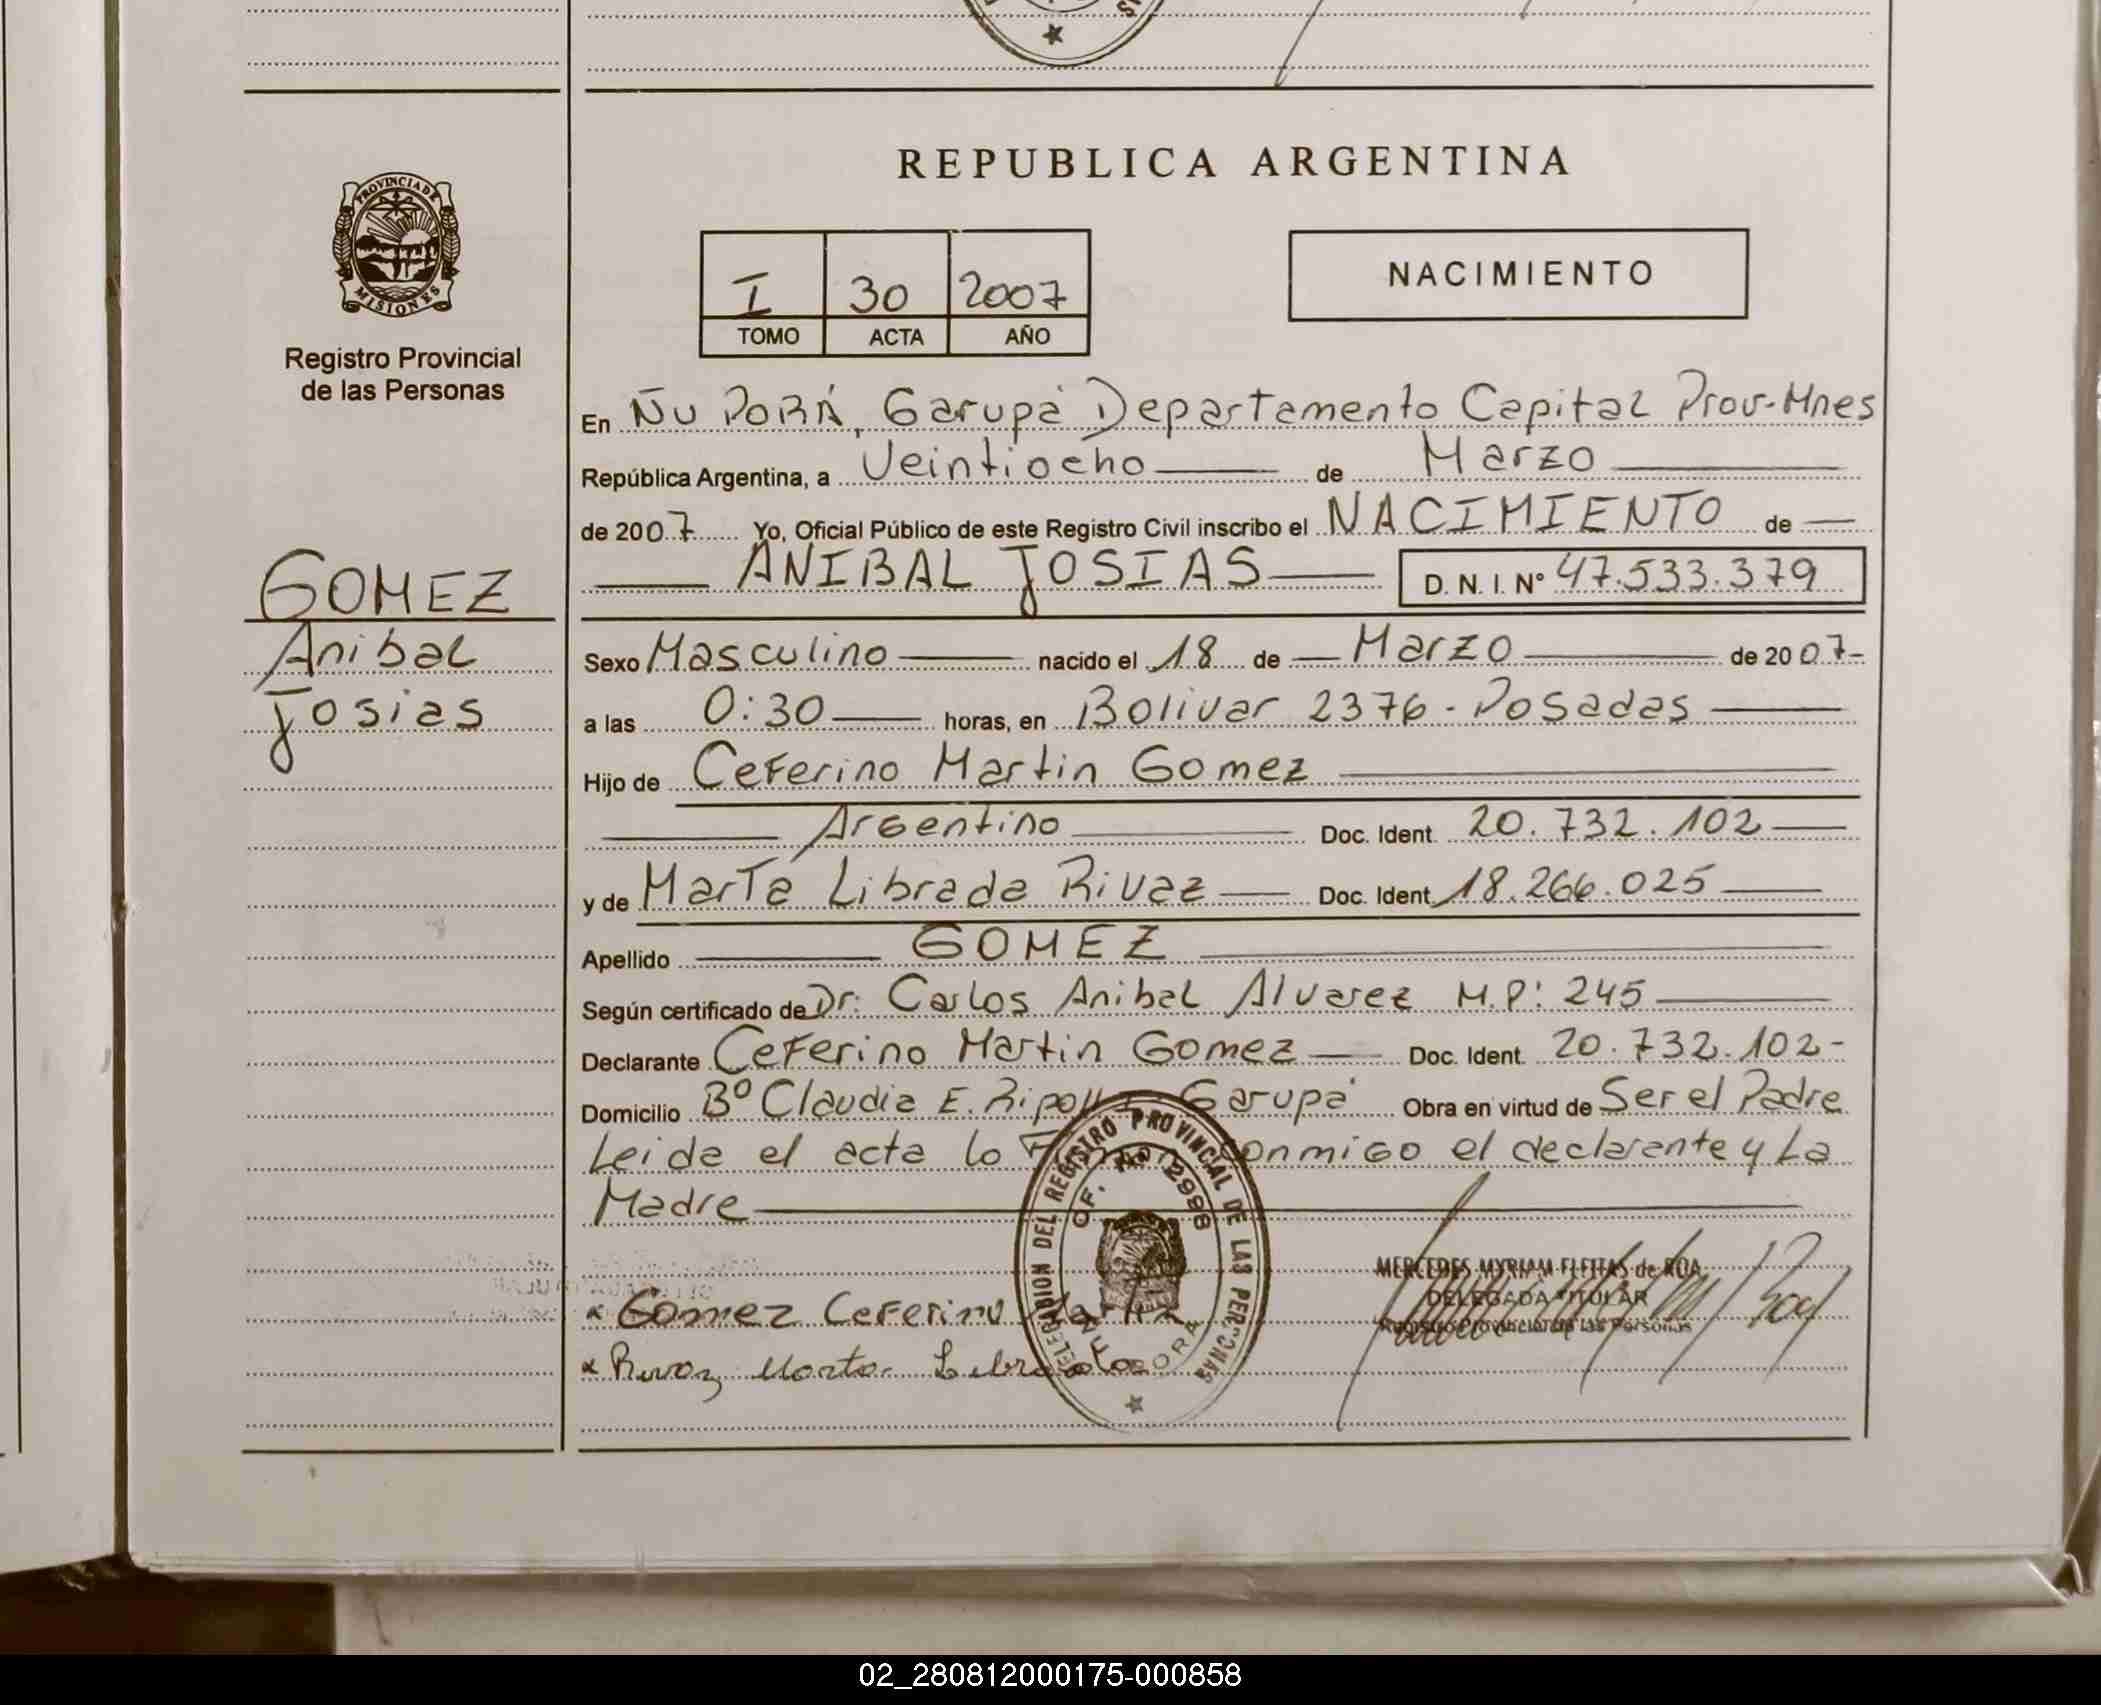 REPUBLICA ARGENTINA
PROVINCIA DE
MISIONES
Registro Provincial
de las Personas
I 30 2007
TOMO ACTA AÑO
NACIMIENTO
En ÑU PORÁ, Garupá Departamento Capital Prov-Mnes
República Argentina, a Veintiocho de Marzo
de 2007 Yo, Oficial Público de este Registro Civil inscribo el NACIMIENTO de
ANIBAL JOSIAS D. N. I. N° 47.533.379
GOMEZ
Anibal
Josias
Sexo Masculino nacido el 18 de Marzo de 2007-
a las 0:30 horas, en Bolivar 2376 - Posadas
Hijo de Ceferino Martin Gomez
Argentino Doc. Ident. 20.732.102
y de Marta Librada Rivaz Doc. Ident. 18.266.025
Apellido GOMEZ
Según certificado de Dr: Carlos Anibal Alvarez M.P: 245
Declarante Ceferino Martin Gomez Doc. Ident. 20.732.102-
Domicilio B° Claudia E. Ripoll - Garupá Obra en virtud de Ser el Padre
Leida el acta lo conmigo el declarante y La
Madre
DELEGACION DEL REGISTRO PROVINCIAL DE LAS PERSONAS
OF. 12998
MERCEDES MYRIAM FLEITAS de ROA
DELEGADA TITULAR
Registro Provincial de las Personas
x Gomez Ceferino Martin
x Rivaz Marta Librada
02_280812000175-000858